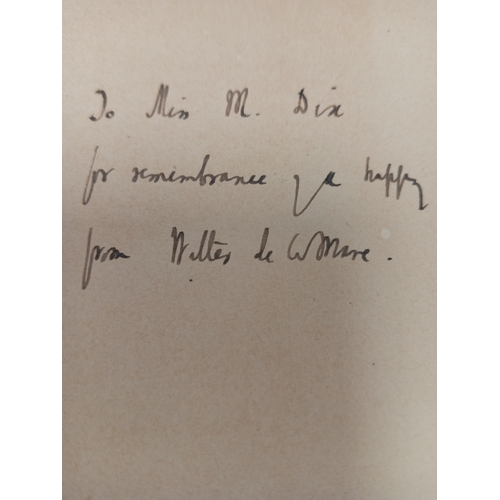 To Miss M. Dix
for remembrance of a happy
from Walter de la Mare.